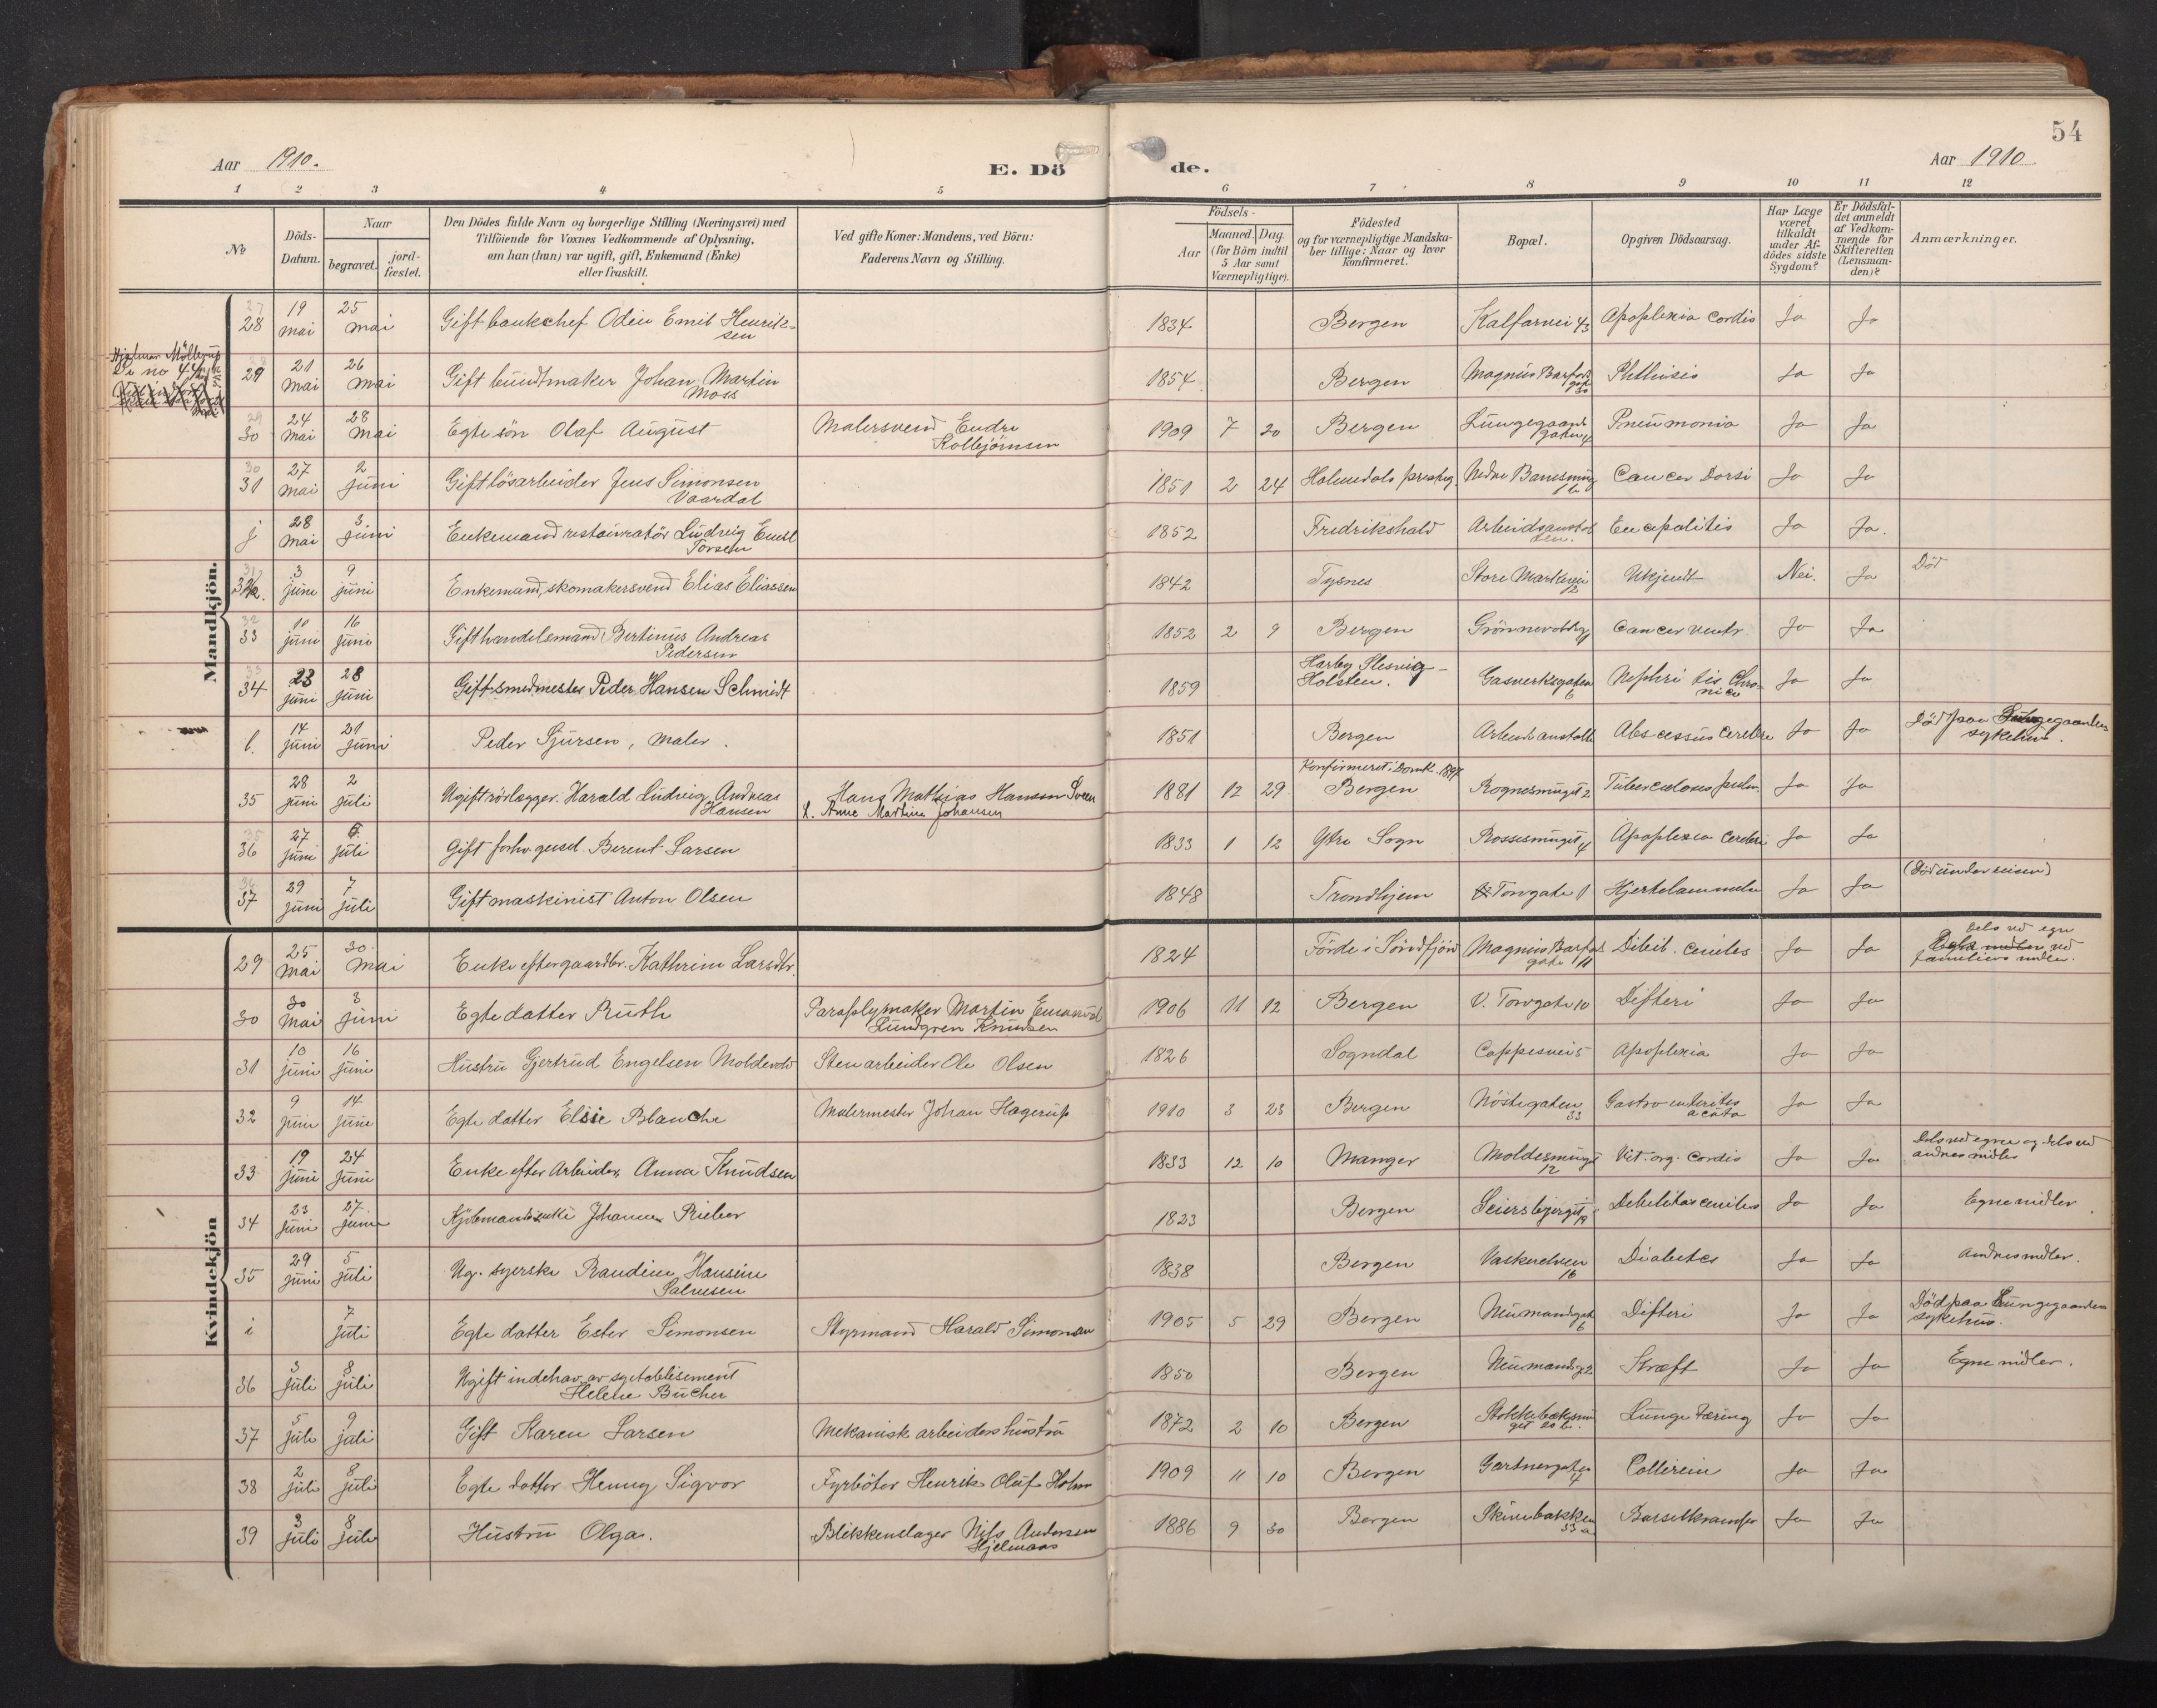 54
Aar 1910.
E. Dö de.
Aar 1910.
1 2 3 4 5 6 7 8 9 10 11 12
No
Döds-
Datum.
Naar
begravet.
jord-
fæstet.
Den Dödes fulde Navn og borgerlige Stilling (Næringsvei) med
Tilföiende for Voxnes Vedkommende af Oplysning,
om han (hun) var ugift, gift, Enkemand (Enke)
eller fraskilt.
Ved gifte Koner: Mandens, ved Börn:
Faderens Navn og Stilling.
Födsels-
Aar
Maaned. Dag.
(for Börn indtil
5 Aar samt
Værnepligtige).
Födested
og for værnepligtige Mandska-
ber tillige: Naar og hvor
konfirmeret.
Bopæl.
Opgiven Dödsaarsag.
Har Læge
været
tilkaldt
under Af-
dödes sidste
Sygdom?
Er Dödsfal-
det anmeldt
af Vedkom-
mende for
Skifteretten
(Lensman-
den)?
Anmærkninger.
Mandkjön.
Hjalmar Möllerup
no 44
28 19 mai 25 mai Gift bankchef Odin Emil Henrik-
sen 1834 Bergen Kalfarvei 43 Apoplexia Cordis Ja Ja
29 21 mai 26 mai Gift bundtmaker Johan Martin
Moss 1854 Bergen Magnus Barfods
gate 30 Phthisis Ja Ja
30 24 mai 28 mai Egte sön Olaf August Malersvend Endre
Kolbjörnsen 1909 7 20 Bergen Lungegaards
gaten Pneumonia Ja Ja
31 27 mai 2 juni Gift lösarbeider Jens Simonsen
Vaardal 1851 2 24 Holmedals prestegj. Nedre Banesmug Cancer Dorsi Ja Ja
j 28 mai 3 juni Enkemand restauratör Ludvig Emil
Torsen 1852 Fredrikshald Arbeidsanstal
ten. Ja Ja.
32 3 juni 9 juni Enkemand, skomakersvend Elias Eliassen 1842 Tysnes Store Markevei
12 Ukjendt Nei. Ja Död
33 10 juni 16 juni Gift handelsmand Bertinus Andreas
Pedersen 1852 2 9 Bergen Cancer ventr Ja Ja
34 23 juni 28 juni Gift smedmester Peder Hansen Schmidt 1859 Harby Slesvig-
Holsten. Gasverksgaten
6 Nephritis Chro-
nica Ja Ja
l. 14 juni 21 juni Peder Sjursen, maler. 1851 Bergen Arbeidsanstalten Abscessus Cerebri Ja Ja Död paa Lungegaardens
sykehus.
35 28 juni 2 juli Ugift rörlægger. Harald Ludvig Andreas
Hansen Hans Mathias Hansen Sveen
Anne Martine Johansen 1881 12 29 Konfirmeret i Domk. 1897
Bergen Rognesmuget 2 Tuberculosis pulm. Ja Ja
36 27 juni 6 juli Gift forhv. gensd. Berent Larsen 1833 1 12 Ytre Sogn Rossesmuget
4 Apoplexia Cerebri Ja Ja
37 29 juni 7 juli Gift maskinist Anton Olsen 1848 Trondhjem Torvgate 1 Hjertelammelse Ja Ja (Död under reisen)
Kvindekjön
29 25 mai 30 mai Enke efter gaardbr. Kathrine Larsdtr. 1824 Förde i Söndfjörd Magnus Barfods
gate 11 Debil. senilis Ja Ja Dels ved egne
midler ved
familiens midler.
30 30 mai 3 juni Egte datter Ruth Paraplymaker Martin Emanuel
Lundgren Knudsen 1906 11 12 Bergen V. Torvgate 10 Difteri Ja Ja
31 10 juni 16 juni Hustru Gjertrud Engelsen Moldevold Stenarbeider Ole Olsen 1826 Sogndal Cappesvei 5 Apoplexia Ja Ja
32 9 juni 14 juni Egte datter Elsie Blanche Malermester Johan Hagerup 1910 3 23 Bergen Nöstegaten
33 Gastroenteritis
acuta Ja Ja
33 19 juni 24 juni Enke efter Arbeider, Anna Knudsen 1833 12 10 Manger Moldesmuget
12 Vit. org. Cordis Ja Ja Dels ved egne og dels ved
andres midler
34 23 juni 27 juni Kjöbmandsenke Johanne Rieber 1823 Bergen Seiersbjerget
19 Debilitas senilis Ja Ja Egne midler.
35 29 juni 5 juli Ug. syerske Randine Hansine
Salvesen 1838 Bergen Vaskerelven
16 Diabetes Ja Ja Andres midler.
i 7 juli Egte datter Ester Simonsen Styrmand Harald Simonsen 1905 5 29 Bergen Neumandsgate
6 Difteri Ja Ja Död paa Lungegaardens
sykehus.
36 3 juli 8 juli Ugift indehav. av syetablisement
Helene Bucher 1850 Bergen Neumandsg 2 Kræft Ja Ja Egne midler.
37 5 juli 9 juli Gift Karen Larsen Mekanisk arbeiders hustru 1872 2 10 Bergen Stokkebæksmu
get 20 b. Lungetæring Ja Ja
38 2 juli 8 juli Egte datter Henny Sigvor Fyrböter Henrik Oluf Holm 1909 11 10 Bergen Gartnergaten
4 Collerine Ja Ja
39 3 juli 8 juli Hustru Olga. Blikkenslager Nils Andersen
Hjelmaas 1886 9 30 Bergen Skivebakken
33 a Barselkrampe Ja Ja